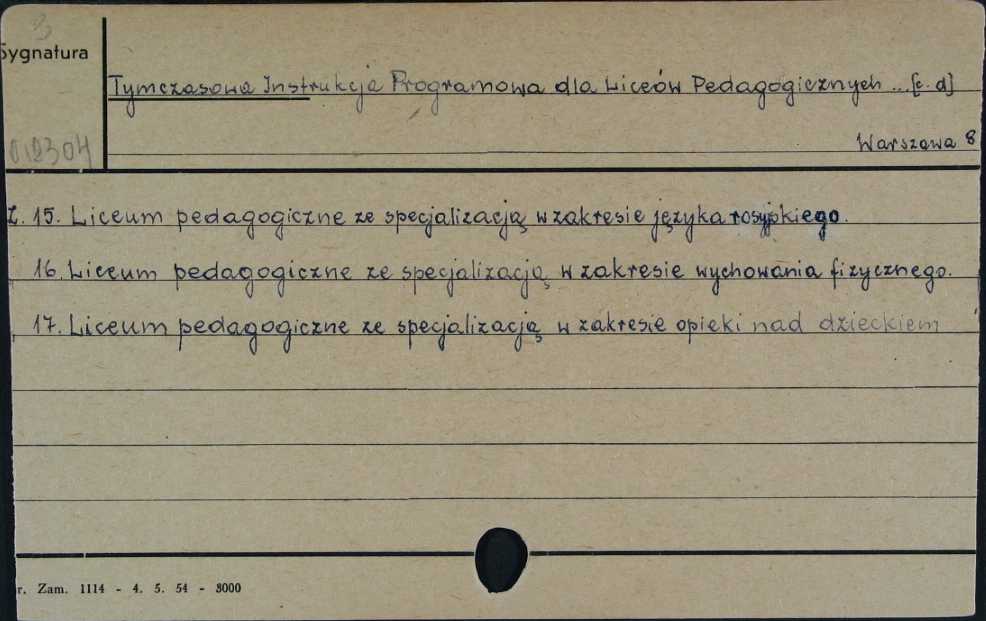 3
Sygnatura
Tymczasowa Instrukcja Programowa dla Liceów Pedagogicznych ... [c. d]
012304
Warszawa 8
Z. 15. Liceum pedagogiczne ze specjalizacją w zakresie języka rosyjskiego.
16. Liceum pedagogiczne ze specjalizacją w zakresie wychowania fizycznego.
17. Liceum pedagogiczne ze specjalizacją w zakresie opieki nad dzieckiem
r. Zam. 1114 - 4. 5. 54 - 8000